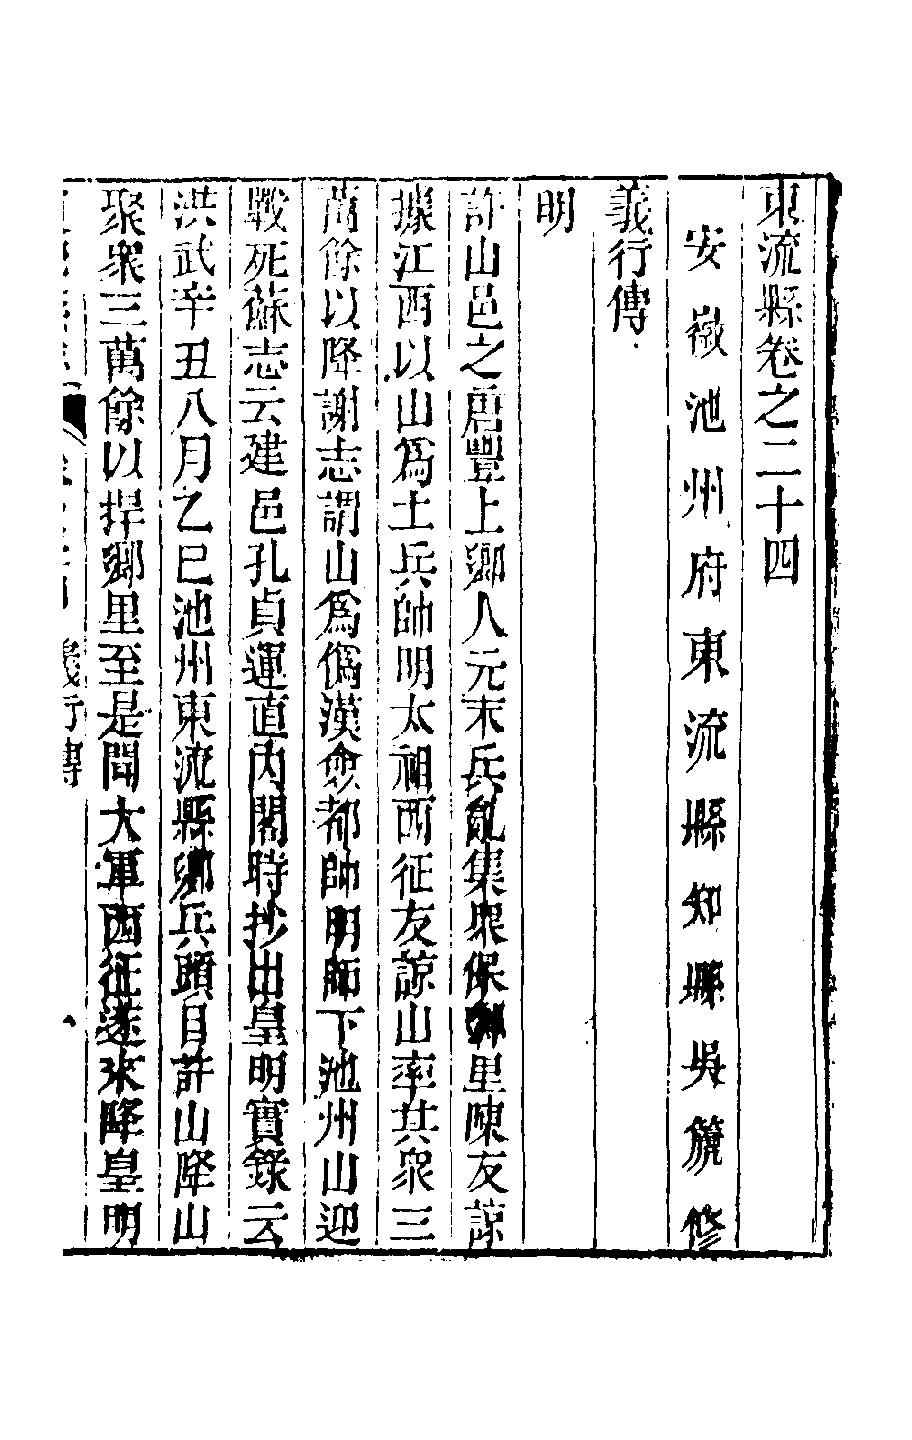 東流縣卷之二十四
安徽池州府東流縣知縣吳篪修
義行傳
明
許山邑之唐豐上鄉人元末兵亂集眾保鄉里陳友諒
據江西以山爲土兵帥明太祖西征友諒山率其眾三
萬餘以降謝志謂山爲僞漢僉都帥明師下池州山迎
戰死蘇志云建邑孔貞運直內閣時抄出皇明實錄云
洪武辛丑八月乙巳池州東流縣鄉兵頭目許山降山
聚眾三萬餘以捍鄉里至是聞大軍西征遂來降皇明
義行傳